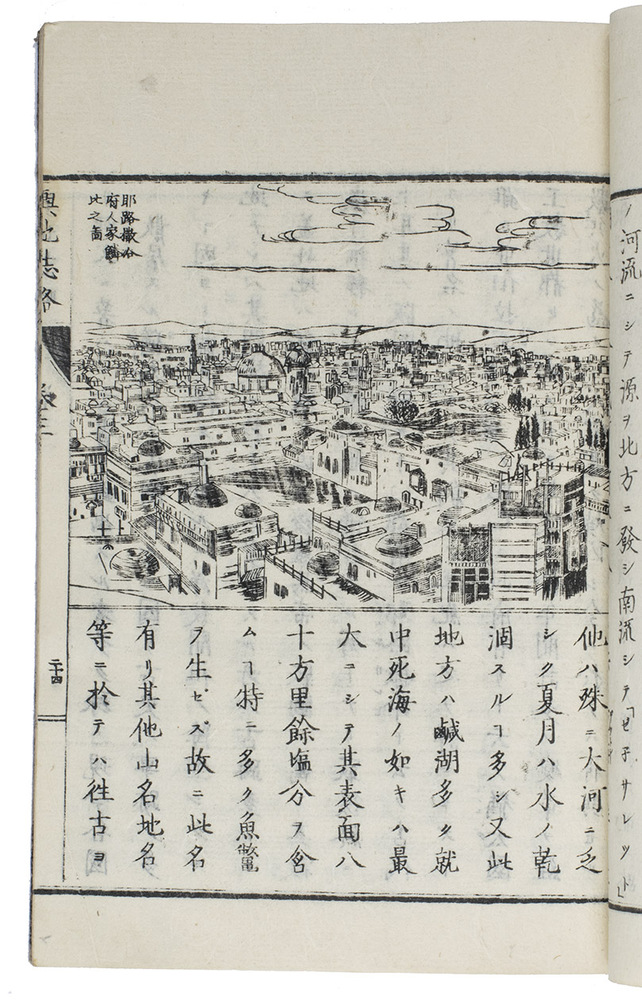 ノ河流ニシテ源ヲ北方ニ發シ南流シテ「ゼ子サレツト」
耶路撒冷
府人家鱗
比之圖
他ハ殊ニ大河ニ乏
シク夏月ハ水ノ乾
涸スルヿ多シ又此
地方ハ鹹湖多ク就
中死海ノ如キハ最
大ニシテ其表面八
十方里餘塩分ヲ含
ムヿ特ニ多ク魚鼈
ヲ生ゼズ故ニ此名
有リ其他山名地名
等ニ於テハ徃古ヨ
輿地誌略
卷三
二十四